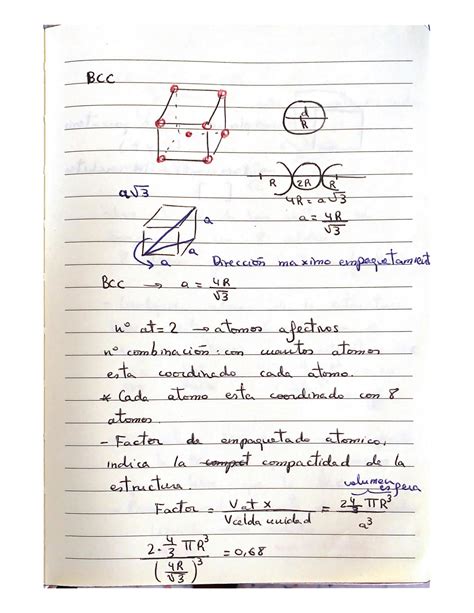 BCC
d
R
R 2R R
4R = a√3
a√3
a = 4R/√3
a
a
Dirección maximo empaquetamient
BCC → a = 4R/√3
nº at = 2 → atomos efectivos
nº combinación: con cuantos atomos
esta coordinado cada atomo.
* Cada atomo esta coordinado con 8
atomos.
- Factor de empaquetado atomico,
indica la compact compactidad de la
estructura.
volumen esfera
Factor = Vat x / Vcelda unidad = 2 4/3 πR³ / a³
2 · 4/3 πR³ / (4R/√3)³ = 0,68